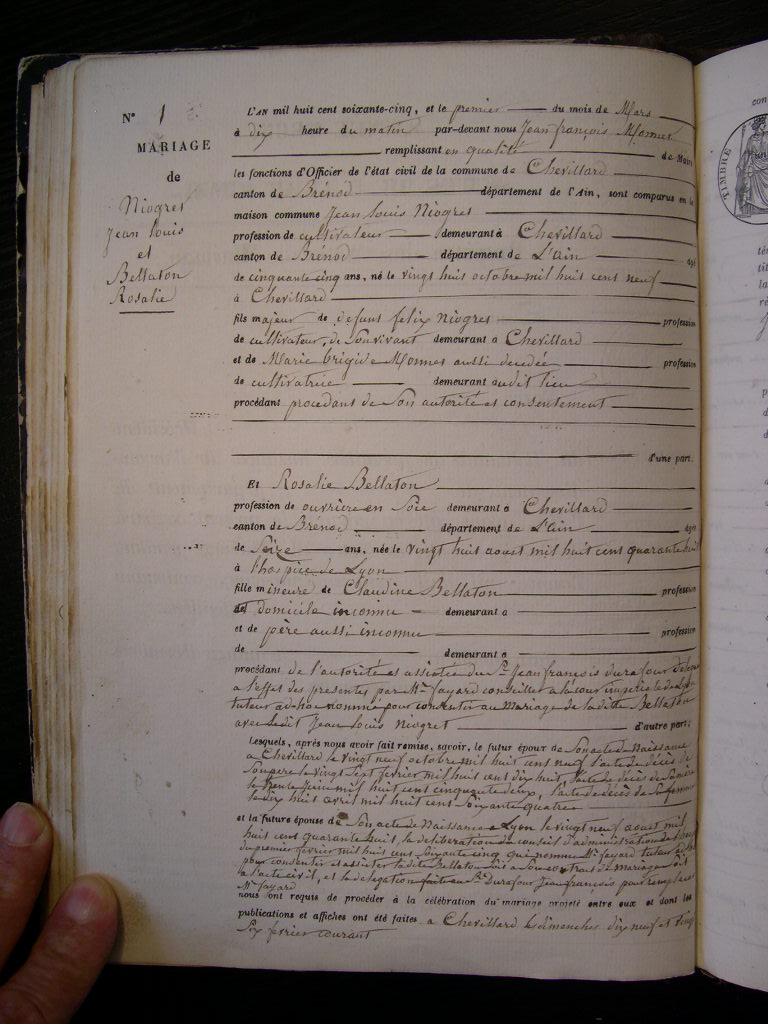 N° 1
MARIAGE
de
Niogret
Jean Louis
et
Bellaton
Rosalie
L'AN mil huit cent soixante-cinq, et le premier du mois de Mars
à dix heure du matin par-devant nous Jean françois Monnet
remplissant en qualité de Maire
les fonctions d'Officier de l'état civil de la commune de Chevillard
canton de Brénod département de l'Ain, sont comparus en la
maison commune Jean Louis Niogret
profession de cultivateur demeurant à Chevillard
canton de Brénod département de L'ain âgé
de cinquante cinq ans, né le vingt huit octobre mil huit cent neuf
à Chevillard
fils majeur de defunt felix Niogret profession
de cultivateur, de Son vivant demeurant à Chevillard
et de Marie brigide Monnet aussi décédée profession
de cultivatrice demeurant audit lieu
procédant procédant de Son autorité et consentement
d'une part.
Et Rosalie Bellaton
profession de ouvrière en Soie demeurant à Chevillard
canton de Brénod département de L'ain âgée
de Seize ans, née le vingt huit aoust mil huit cent quarante huit
à l'hospice de Lyon
fille mineure de Claudine Bellaton profession
de domicile inconnu demeurant à
et de père aussi inconnu profession
de demeurant à
procédant de l'autorité et assistée du Sr Jean françois durafour
a l'effet des présentes par Mr fayard conseiller a la cour impériale de Lyon
tuteur ad-hoc nommé pour consentir au Mariage de la dite Bellaton
avec ledit Jean Louis Niogret d'autre part;
Lesquels, après nous avoir fait remise, savoir, le futur époux de Son acte de Naissance
a Chevillard le vingt neuf octobre mil huit cent neuf l'acte de décès de
Son père le vingt Sept fevrier mil huit cent dix huit, l'acte de décès de Sa mère
le trente Juin mil huit cent cinquante deux, l'acte de décès de Sa femme
le dix huit avril mil huit cent Soixante quatre
et la future épouse de Son acte de Naissance a Lyon le vingt neuf aoust mil
huit cent quarante huit, la délibération du conseil d'administration
du premier fevrier mil huit cent Soixante cinq qui nomme Mr fayard tuteur
pour consentir et assister la dite Bellaton Soit a Son contrat de mariage Soit
a l'acte civil, et la délégation faite au Sr Durafour Jean françois pour remplacer
Mr fayard
nous ont requis de procéder à la célébration du mariage projeté entre eux et dont les
publications et affiches ont été faites a Chevillard les dimanches dix neuf et vingt
Six fevrier courant
TIMBRE